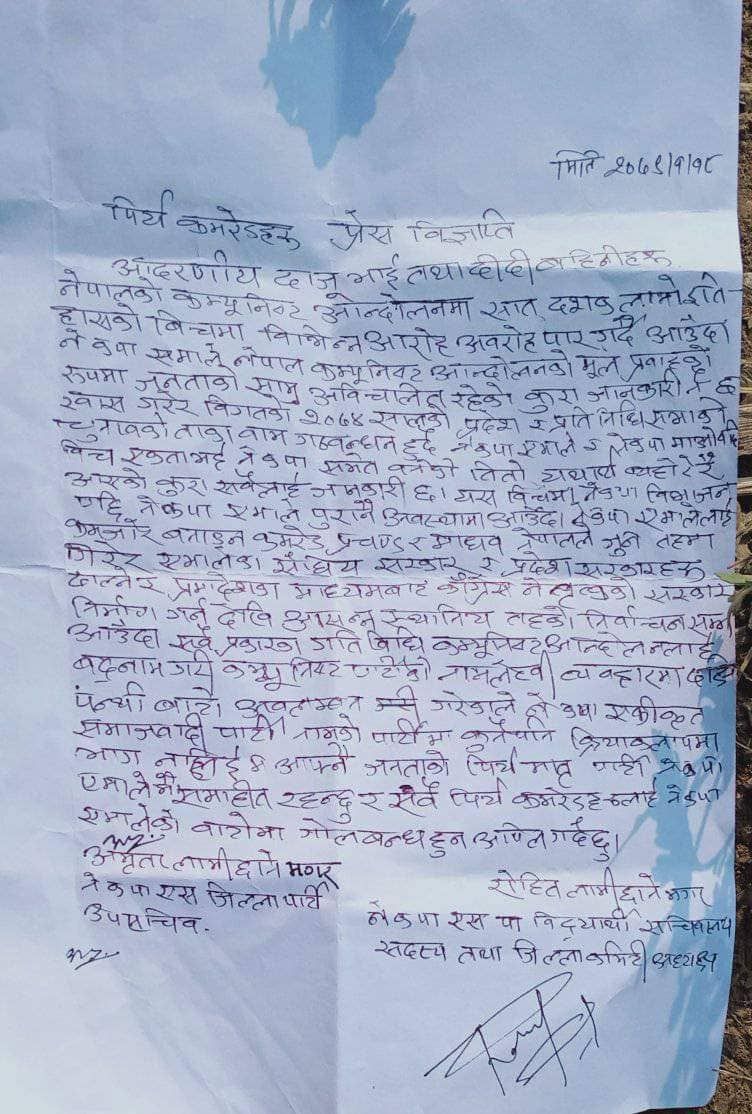 मिति २०७९/१/१८
पिर्य कमरेडहरू प्रेस विज्ञप्ति
आदरणीय दाजु भाई तथा दीदी बहिनीहरू
नेपालको कम्यूनिस्ट आन्दोलनमा सात दशक लामो इति-
हासको बिचमा विभिन्न आरोह अवरोह पार गर्दै आउँदा
ने क पा एमाले नेपाल कम्यूनिस्ट आन्दोलनको मूल प्रवाहको
रूपमा जनताको सामु अविचालित रहेको कुरा जानकारी नै छ
खास गरेर विगतको २०७४ सालको प्रदेश र प्रतिनिधि सभाको
चुनावको ताका वाम गठबन्धन हुदै नेकपा एमाले र नेकपा माओवादी
बिच एकता भई नेकपा समेत बनेको तितो यथार्थ व्यहोर्दै
आएको कुरा सबैलाई जानकारी छ। यस बिचमा नेकपा विभाजन
पछि नेकपा एमाले पुरानै अवस्थामा आउँदा नेकपा एमालेलाई
कमजोर बनाइन कमरेड प्रचण्ड र माधव नेपालले जुन तहमा
गिरेर एमालेका संघिय सरकार र प्रदेश सरकारहरू
ढाल्ने र, प्रमादेशका माध्यमबाट काँग्रेस नेतृत्वको सरकार
निर्माण गर्नु देखि आसन्न स्थानिय तहको निर्वाचन सम्म
आउँदा सबै प्रकारका गतिविधि कम्यूनिस्ट आन्दोलनलाई
बदनाम गरी कम्यूनिस्ट पार्टीको नामलेहवी व्यवहारमा दक्षिण
पन्थी बाटो अवलम्बन गरेकाले ने कपा एकीकृत
समाजवादी पार्टी नामको पार्टीमा कुनैपनि क्रियाकलापमा
भाग नलिई म आफ्नै जनताको पिर्य मातृ पार्टी नेकपा
एमालेमै समाहीत रहन्छु र सबै पिर्य कमरेडहरूलाई नेकपा
एमालेको बाटोमा गोलबन्ध हुन अपिल गर्दछु।
अमृता लामीछाने मगर
नेकपा एस जिल्ला पार्टी
उपसचिव.
रोहित लामीछाने मगर
ने कपा एस पा विद्यार्थी सचिवालय
सदस्य तथा जिल्ला कमिटी अध्यक्ष